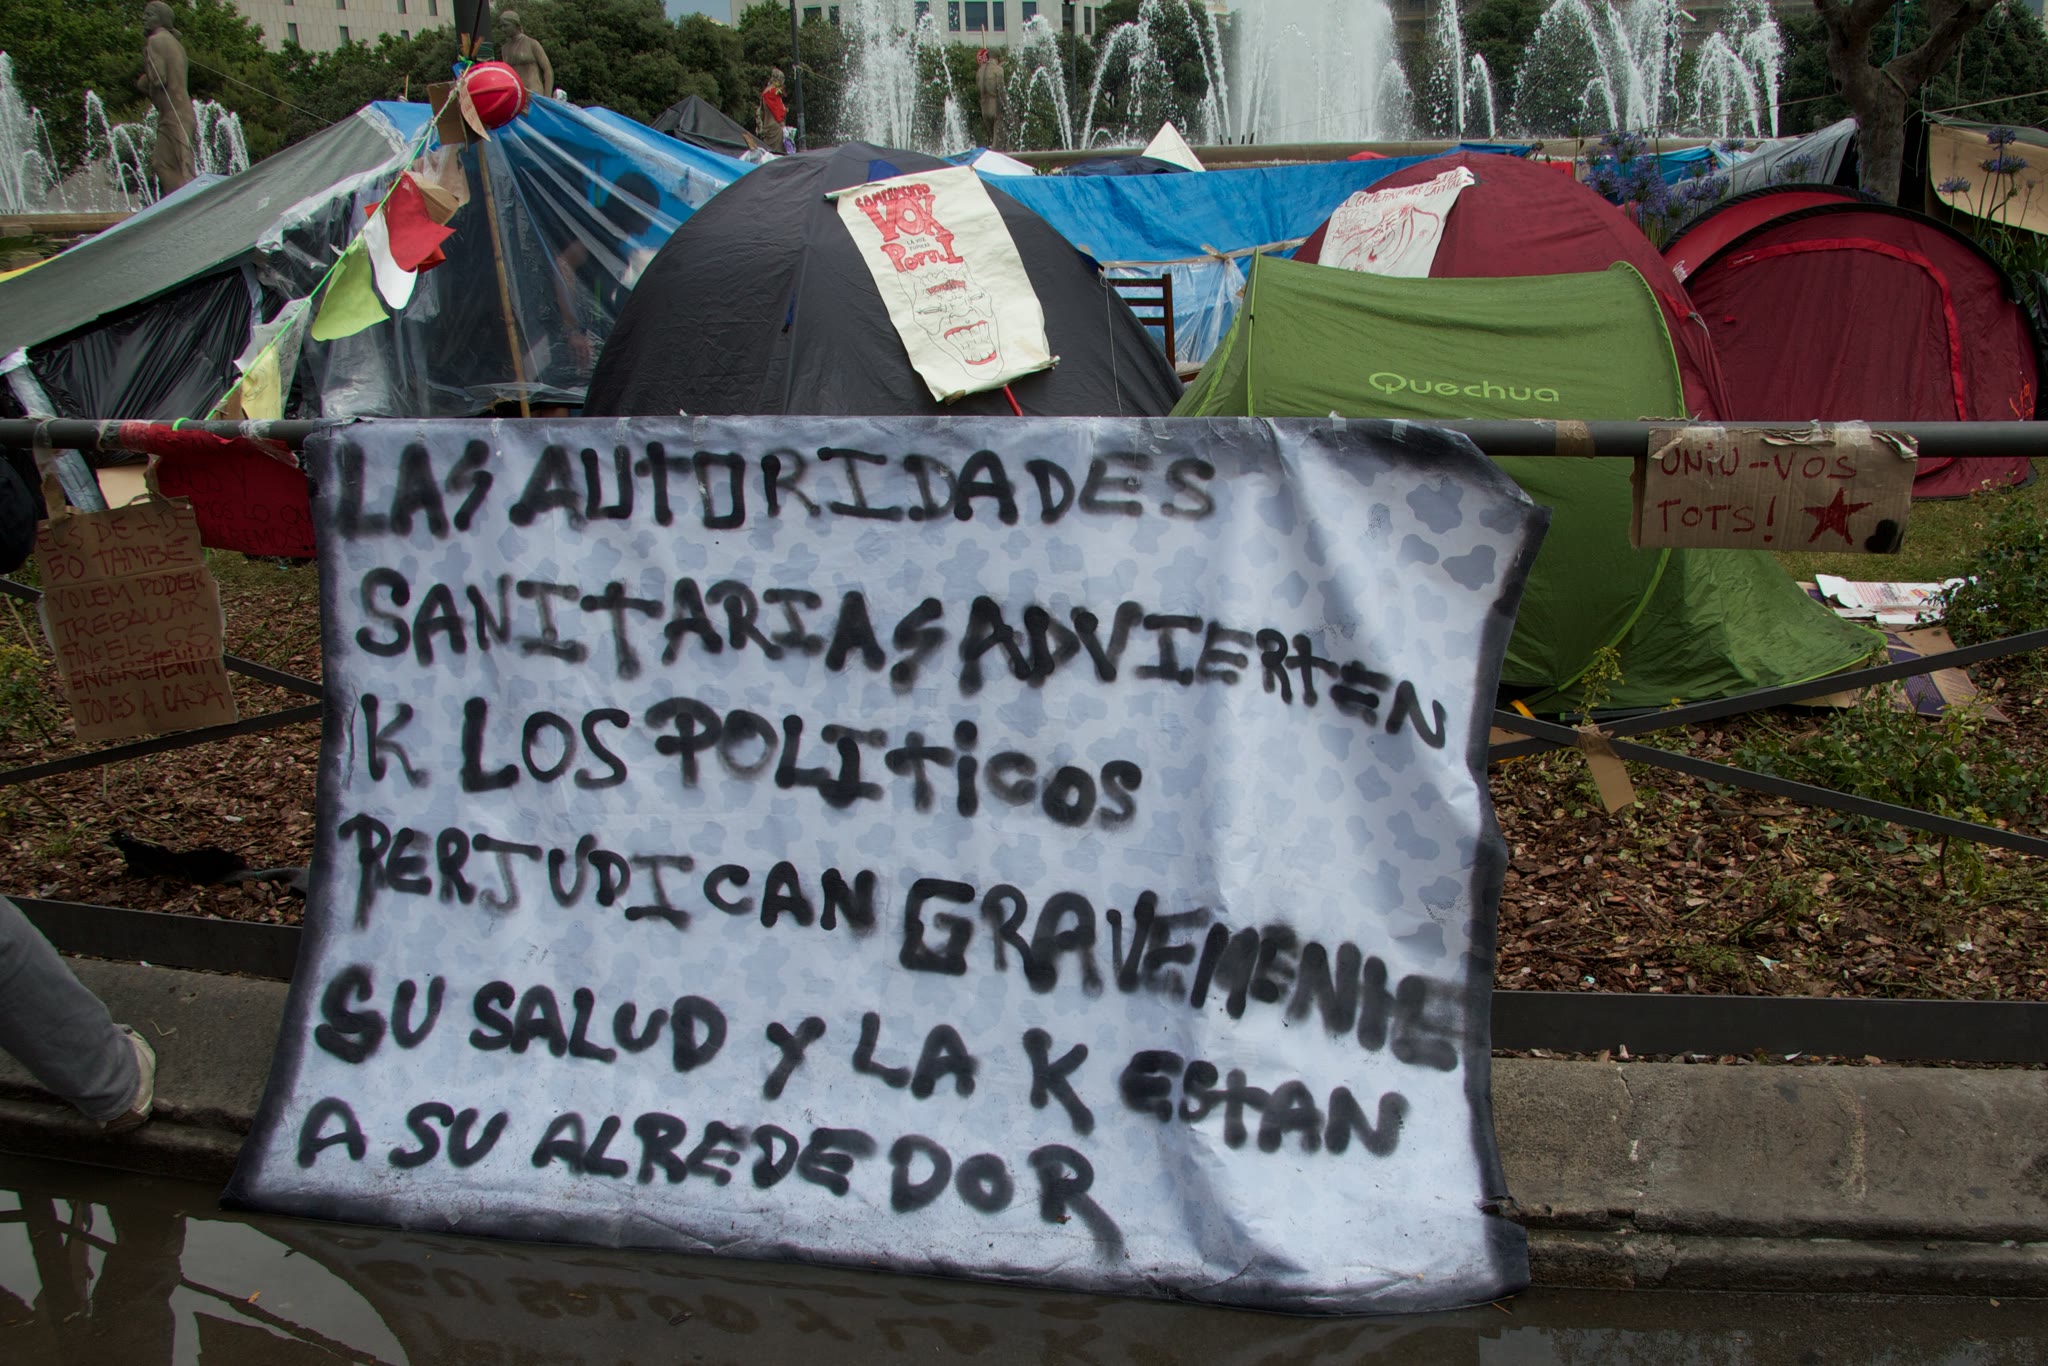 CAMPAMENTO
VOX
LA VOZ
POPULAR
POPULI
Quechua
LAS AUTORIDADES
SANITARIAS ADVIERTEN
K LOS POLITICOS
PERJUDICAN GRAVEMENTE
SU SALUD Y LA K ESTAN
A SU ALREDEDOR
UNIU-VOS
TOTS!
ELS DE + DE
50 TAMBÉ
VOLEM PODER
TREBALLAR
FINS ELS 65
JOVES A CASA